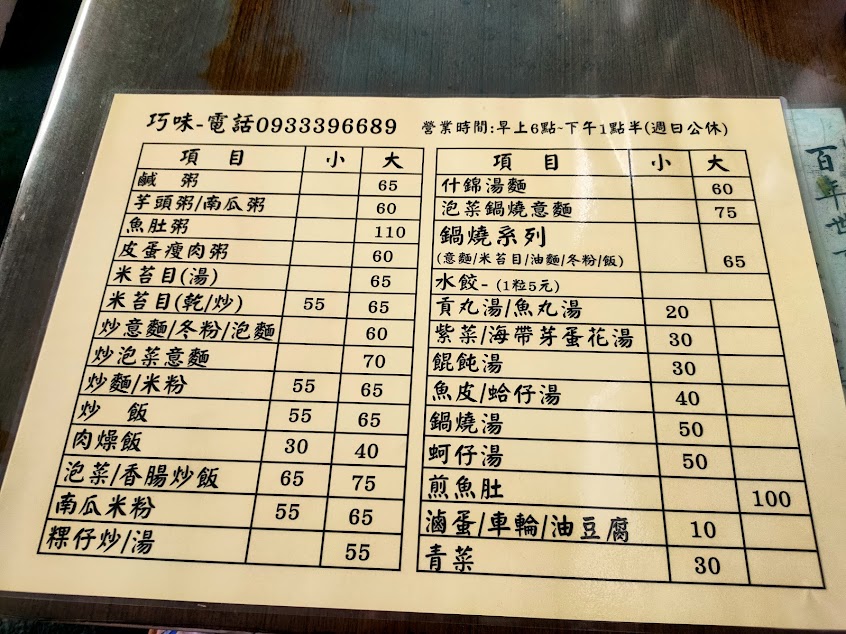 巧味-電話0933396689 營業時間:早上6點~下午1點半(週日公休)
項 目 小 大
鹹 粥 65
芋頭粥/南瓜粥 60
魚肚粥 110
皮蛋瘦肉粥 60
米苔目(湯) 65
米苔目(乾/炒) 55 65
炒意麵/冬粉/泡麵 60
炒泡菜意麵 70
炒麵/米粉 55 65
炒 飯 55 65
肉燥飯 30 40
泡菜/香腸炒飯 65 75
南瓜米粉 55 65
粿仔炒/湯 55
項 目 小 大
什錦湯麵 60
泡菜鍋燒意麵 75
鍋燒系列
(意麵/米苔目/油麵/冬粉/飯) 65
水餃- (1粒5元)
貢丸湯/魚丸湯 20
紫菜/海帶芽蛋花湯 30
餛飩湯 30
魚皮/蛤仔湯 40
鍋燒湯 50
蚵仔湯 50
煎魚肚 100
滷蛋/車輪/油豆腐 10
青菜 30
百年世